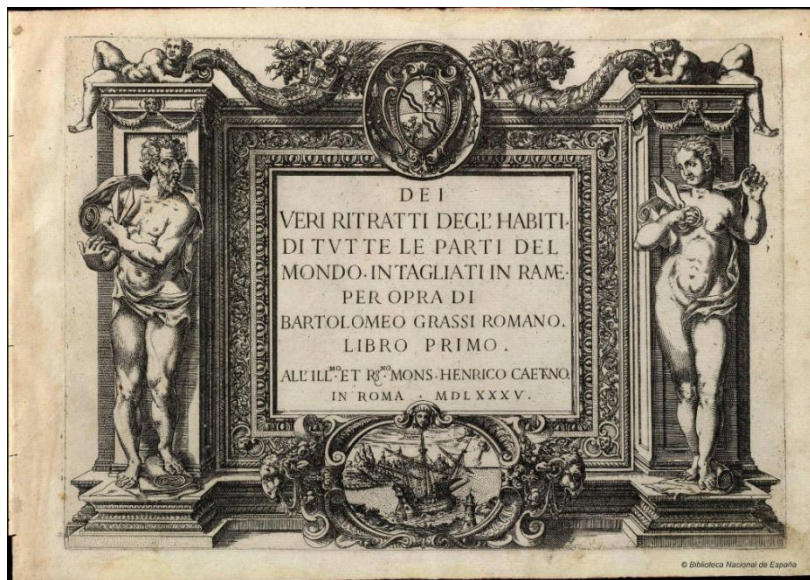 DEI
VERI RITRATTI DEGL' HABITI·
DI TVTTE LE PARTI DEL
MONDO·INTAGLIATI IN RAME·
PER OPRA DI
BARTOLOMEO GRASSI ROMANO.
LIBRO PRIMO.
ALL' ILL.MO ET R.MO MONS·HENRICO CAETNO
IN ROMA · MDLXXXV.
© Biblioteca Nacional de España